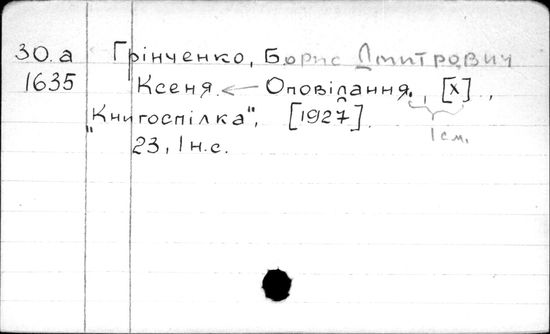 30.а Грінченко, Борис Дмитрович
1635 Ксеня. ← Оповідання. , [Х] ,
"Книгоспілка", [1927].
1 см.
23, 1 н.с.